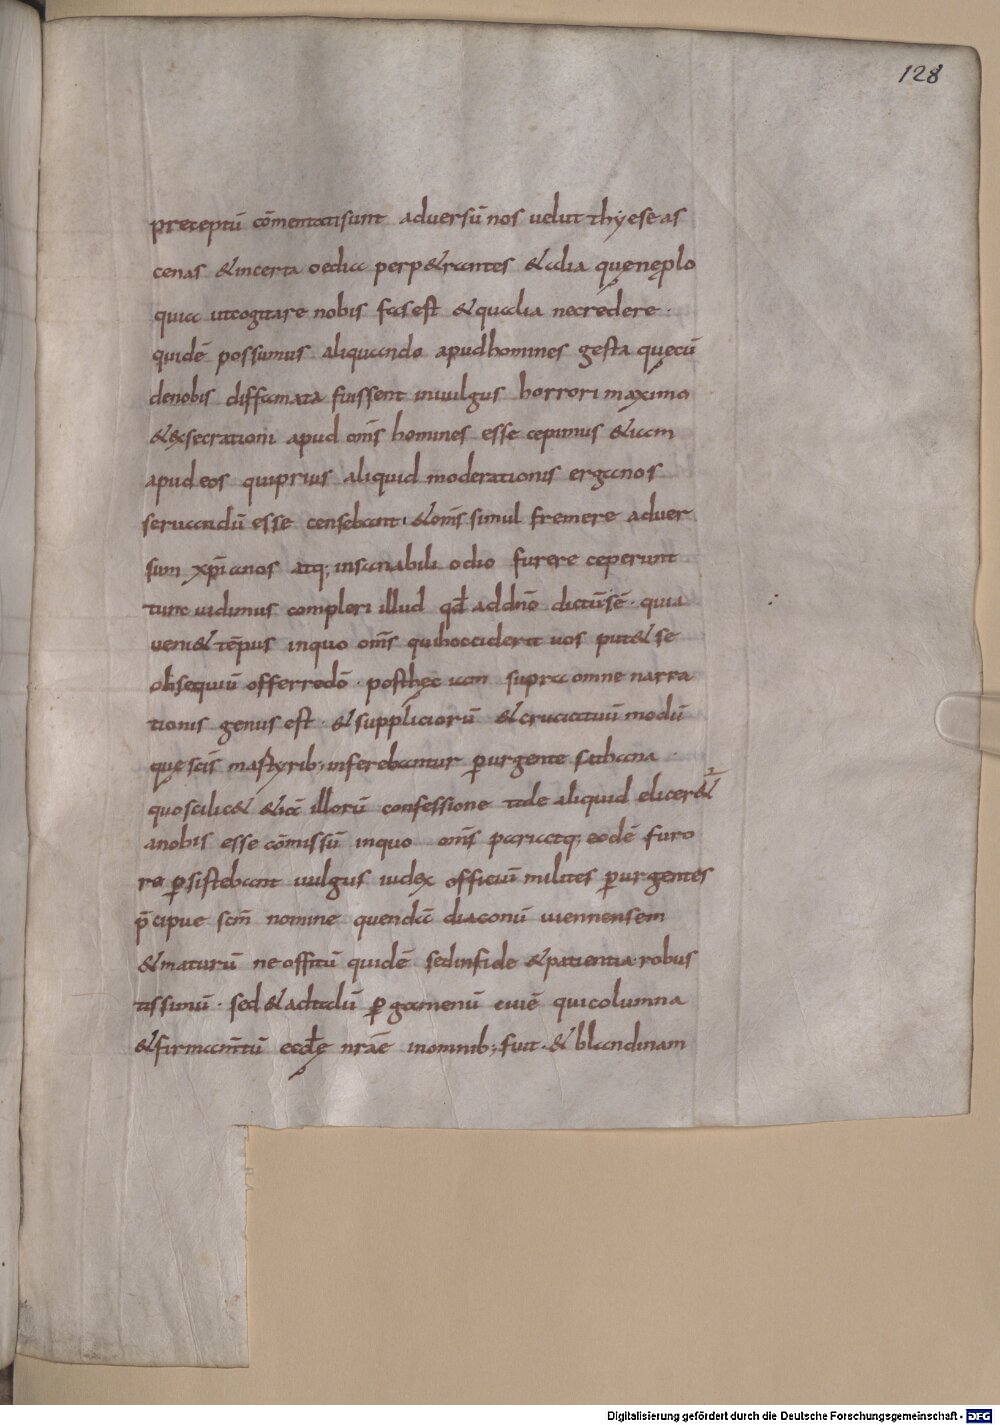 128
preceptū cōmentatisunt adversū nos velut thyeseas
cenas &incerta oedia perp&rantes &alia quęnęplo
quia utcogitare nobis fasest &qualia necredere·
quidē possumus aliquando apudhomines gesta quęcū
denobis diffamata fuissent inuulgus horrori maximo
&exsecrationi apud om̄s homines esse cepimus &iam
apud eos quiprius aliquid moderationis erganos
seruandū esse censebant· &om̄s simul fremere adver
sum xp̄ianos atq; insanabili odio furere ceperunt
tunc uidimus compleri illud qđ addnō dictūsē· quia
ueni& tēpus inquo om̄s quihocciderit uos put& se
obsequiū offerredō· posthęc iam supra omne narra
tionis genus est· &suppliciorū &cruciatuū modū
quęscīs mastyrib; inferebantur ꝑurgente sathana
quoscilic& &iā illorū confessione tade aliquid elicer&
anobis esse cōmissū inquo om̄s pariatq; eodē furo
re ꝑsistebant uulgus iudex officiū milites ꝑurgentes
p̄cipue scm̄ nomine quendā diaconū uiennensem
&maturū neoffitū quidē sedinfide &patientia robus
tissimū· sed &adtalū ꝑgamenū ciuē quicolumna
&firmam̄tū eccłę nrāe inomnib; fuit· &blandinam
Digitalisierung gefördert durch die Deutsche Forschungsgemeinschaft - DFG